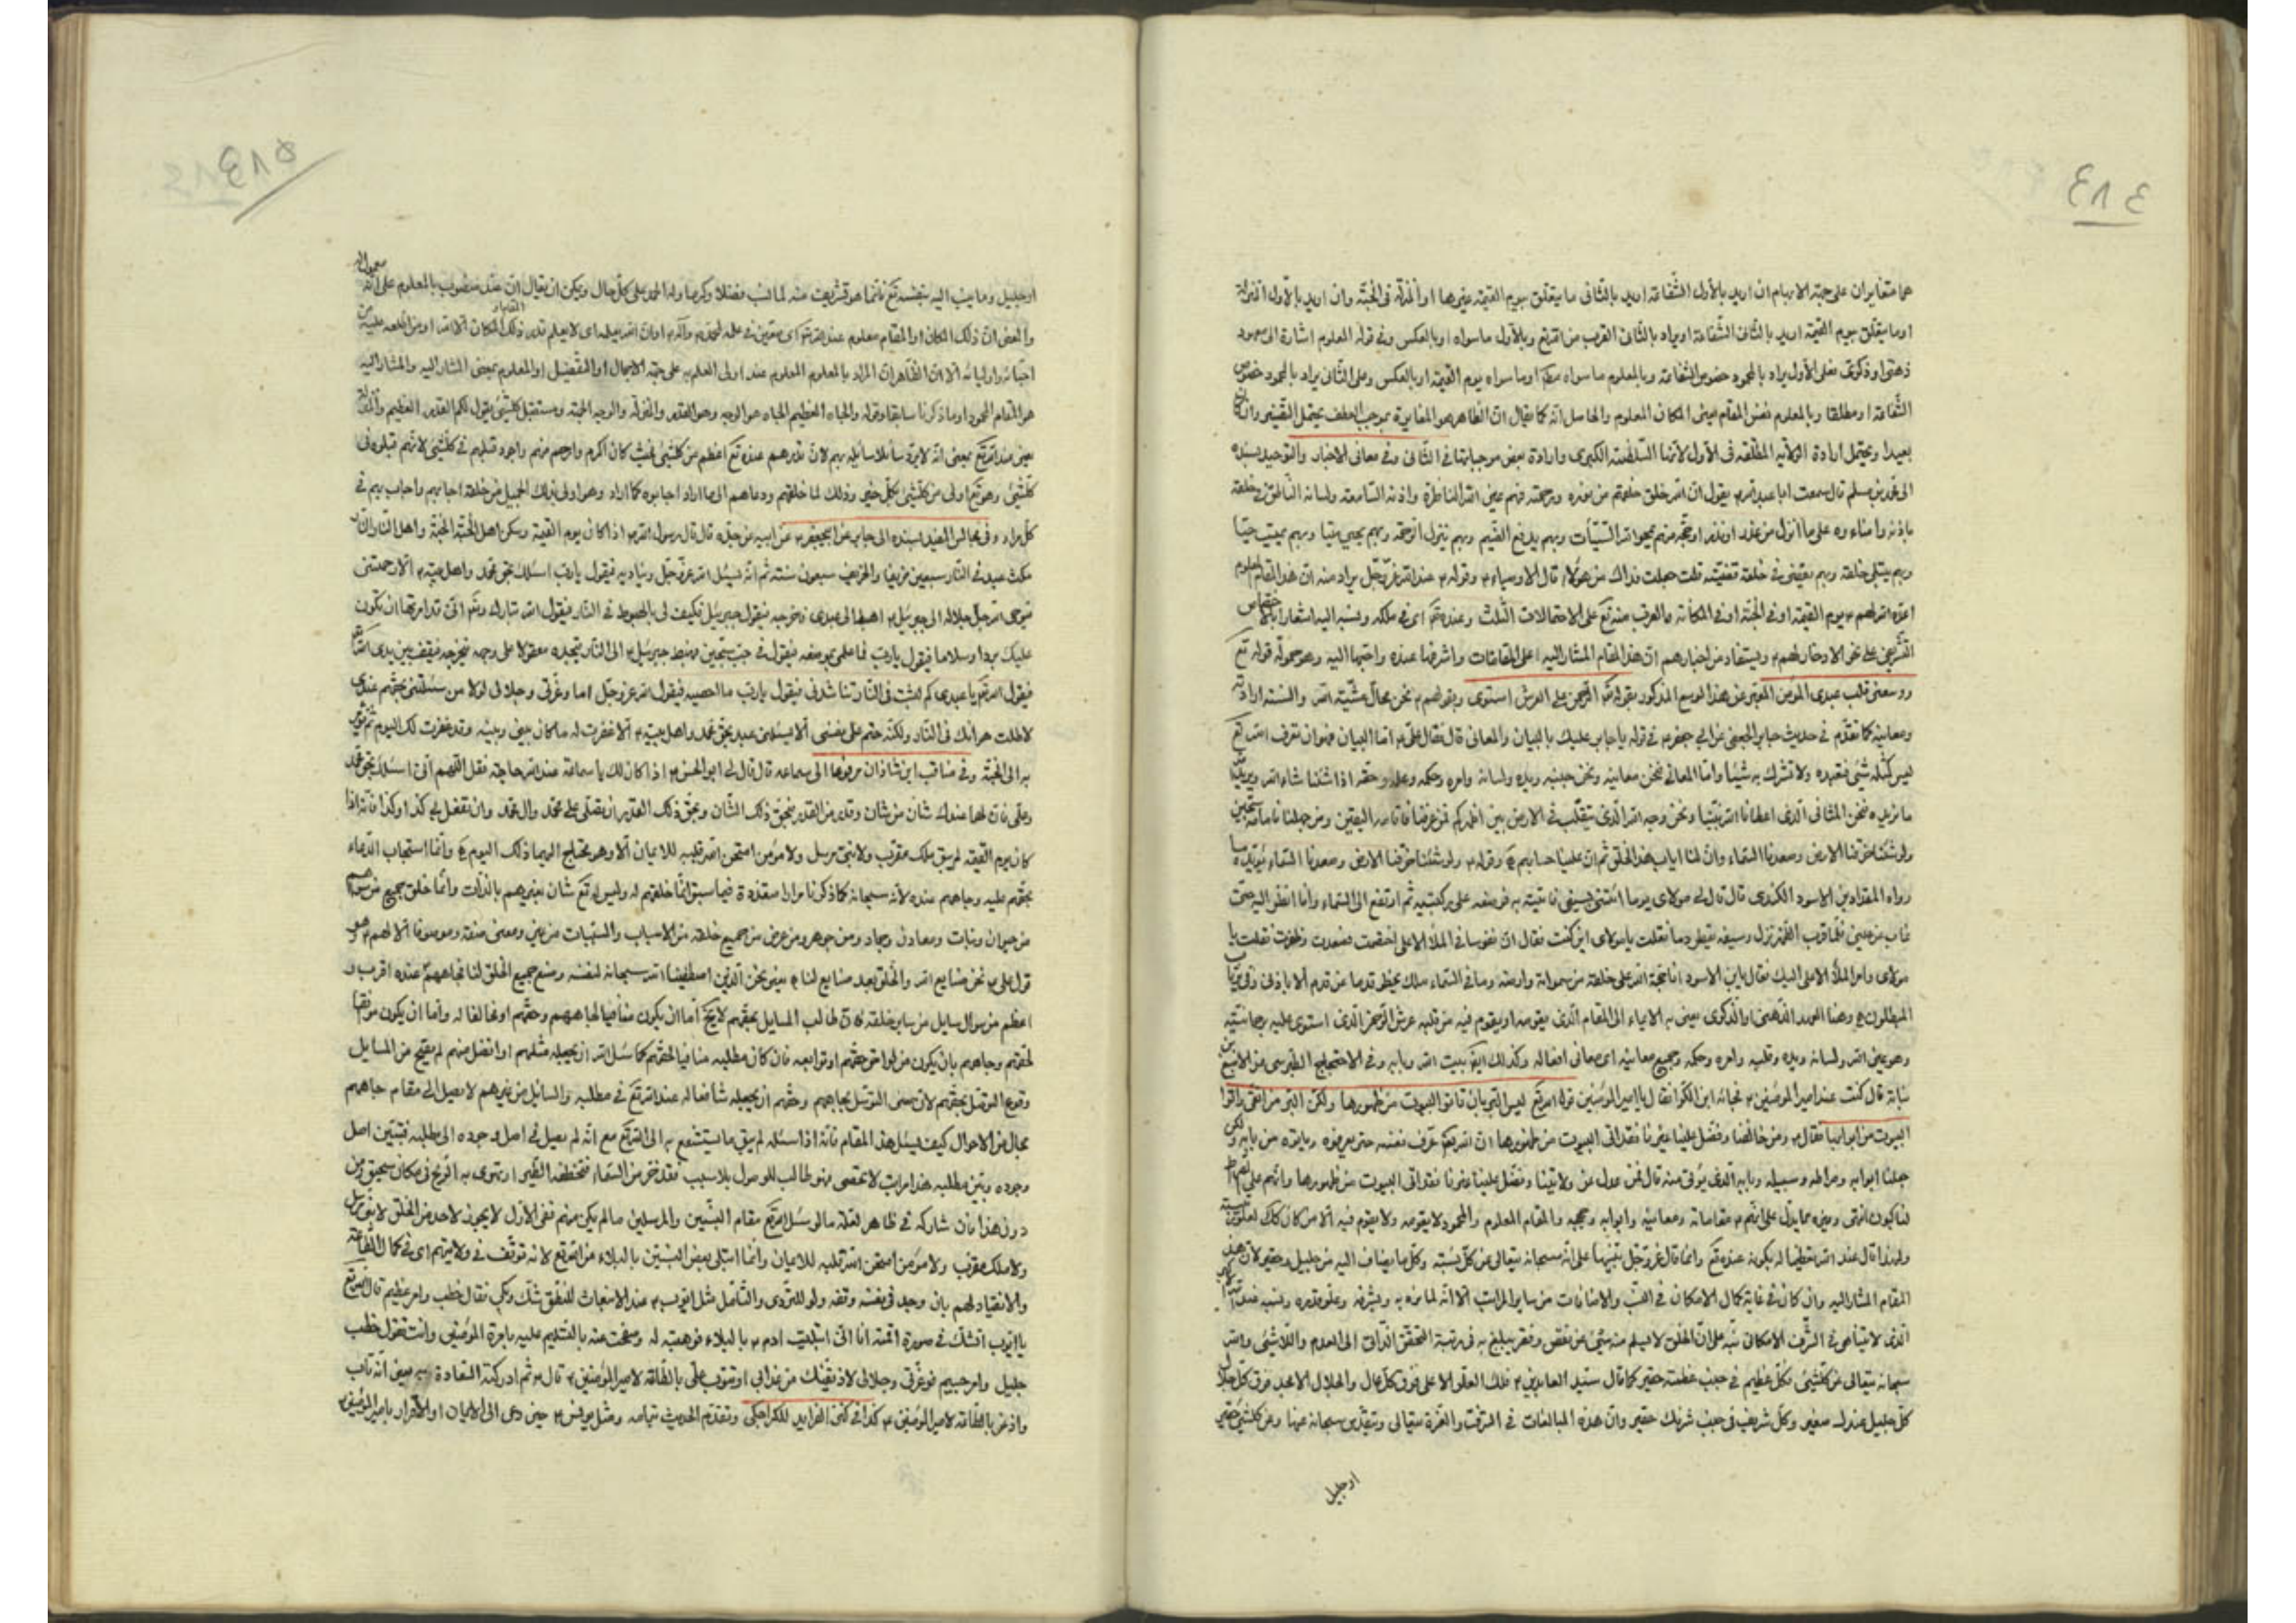 ٤٨٤
هما متغايران على جهة الابهام ان اريد بالأول الشفاعة اريد بالثانى ما يتعلق بيوم القيمة غيرها او المنزلة فى الجنة وان اريد بالأول المنزلة
او ما يتعلق بيوم القيمة اريد بالثانى الشفاعة او يراد بالثانى القرب من الله تع وبالأول ما سواه او بالعكس وفى قوله المعلوم اشارة الى معهود
ذهنى او ذكرى فعلى الأول يراد بالمحمود خصوص الشفاعة وبالمعلوم ما سواه مطلقا او ما سواه يوم القيمة او بالعكس وعلى الثانى يراد بالمحمود خصوص
الشفاعة او مطلقا وبالمعلوم نفس المقام يعنى المكان المعلوم والحاصل انه كما يقال ان الظاهر هو المغايرة بموجب العطف يحتمل التفسير وان كان
بعيدا ويحتمل ارادة الولاية المطلقة فى الأول لأنها السلطنة الكبرى وارادة بعض موجباتها فى الثانى وفى معانى الاخبار والتوحيد بسنده
الى محمد بن مسلم قال سمعت ابا عبد الله ع يقول ان لله خلقا خلقهم من نوره ورحمته فهم عين الله الناظرة واذنه السامعة ولسانه الناطق فى خلقه
باذنه وامناءوه على ما انزل من عذر او نذر او حجة فبهم يمحو الله السيئات وبهم يدفع الضيم وبهم ينزل الرحمة وبهم يحيى ميتا وبهم يميت حيا
وبهم يبتلى خلقه وبهم يقضى فى خلقه قضيته قلت جعلت فداك من هؤلاء قال الاوصياء ع وقوله ع عند الله عز وجل يراد منه ان هذا المقام المعلوم
اعزه الله لهم ع يوم القيمة او فى الجنة او فى المكانة والقرب منه تع على الاحتمالات الثلث وعنده تع اى فى ملكه ونسبه اليه اشعارا بالاختصاص
التشريفى على نحو الادخار لهم ع ويستفاد من اخبارهم ان هذا المقام المشار اليه اعلى المقامات واشرفها عنده واحبها اليه وهو محل قوله تع
ووسعنى قلب عبدى المؤمن المعبر عن هذا الوسع المذكور بقوله تع الرحمن على العرش استوى وبقولهم ع نحن محال مشية الله والسنة ارادته
ومعانيه كما تقدم فى حديث جابر الجعفى عن ابى جعفر ع فى قوله يا جابر عليك بالبيان والمعانى قال فقال على ع اما البيان فهو ان تعرف الله تع
ليس كمثله شئ فتعبده ولا تشرك به شيئا واما المعانى فنحن معانيه ونحن جنبه ويده ولسانه وامره وحكمه وعلمه وحقه اذا شئنا شاء الله ويريد الله
ما نريده فنحن المثانى الذى اعطانا الله نبينا ونحن وجه الله الذى يتقلب فى الارض بين اظهركم فمن عرفنا فامامه اليقين ومن جهلنا فامامه سجين
ولو شئنا خرقنا الارض وصعدنا السماء وان لنا اياب هذا الخلق ثم ان علينا حسابهم وقوله ع ولو شئنا خرقنا الارض وصعدنا السماء يؤيده ما
رواه المقداد بن الاسود الكندى قال قال لى مولاى يوما ائتنى بسيفى فاتيته به فوضعه على ركبتيه ثم ارتفع الى السماء وانا انظر اليه حتى
غاب عن عينى فلما قرب الظهر نزل وسيفه يقطر دما فقلت يا مولاى اين كنت فقال ان نفوسا فى الملأ الاعلى اختصمت فصعدت وطهرت فقلت يا
مولاى وامر الملأ الاعلى اليك فقال يابن الاسود انا حجة الله على خلقه من سمواته وارضه وما فى السماء ملك يخطو قدما من قدم الا باذنى وفىّ يرتاب
المبطلون وهذا العهد الذهنى والذكرى يعنى به الايماء الى المقام الذى يقومه او يقوم فيه من قلبه عرش الرحمن الذى استوى عليه برحمانيته
وهو عين الله ولسانه ويده وقلبه وامره وحكمه وجميع معانيه اى معانى افعاله وكذلك ايضا بيت الله وبابه وفى الاحتجاج الطبرسى عن الاصبغ بن
نباتة قال كنت عند امير المؤمنين ع فجاءه ابن الكوا فقال يا امير المؤمنين قول الله تع ليس البر بان تاتوا البيوت من ظهورها ولكن البر من اتقى واتوا
البيوت من ابوابها فقال ع ومن خالفنا وفضل علينا غيرنا فقد اتى البيوت من ظهورها ان الله تع لو شاء عرف نفسه حتى يعرفوه وياتوه من بابه ولكن
جعلنا ابوابه وصراطه وسبيله وبابه الذى يؤتى منه قال فمن عدل عن ولايتنا وفضل علينا غيرنا فقد اتى البيوت من ظهورها وانهم على الصراط
لناكبون انتهى وغيره مما يدل على انهم ع مقاماته ومعانيه وابوابه وحججه والمقام المعلوم والمحمود لا يقومه ولا يقوم فيه الا من كان كذلك
المقام المشار اليه وان كان فى غاية كمال الامكان فى النسب والاضافات من سائر المراتب الا انه لما نوه به وبشرفه وعلو قدره ونسبه
الذى لا يتناهى فى الشرف الامكانى نبه على ان الخلق لا يسلم منه شئ عن نقص وفقر يبلغ به فى رتبة التحقق الذاتى الى العدم واللاشئ والله
سبحانه يتعالى عن كلشئ فكل عظيم فى جنب عظمته حقير كما قال سيد العابدين ع فلك العلو الاعلى فوق كل عال والجلال الامجد فوق كل جلال
كل جليل عندك صغير وكل شريف فى جنب شرفك حقير وان هذه المبالغات فى الشرف والعزة يتعالى ويتقدس سبحانه عنها وعن كلشئ حقير
او جليل
٤٨٥
او جليل وما ينسب اليه بنفسه تع فانما هو تشريف منه لما نسب فضلا وكرما وله الحمد على كل حال ويمكن ان يقال ان عند منصوب بالمعلوم على انه معمول له
والمعنى ان ذلك المكان او المقام معلوم عند الله تع
احبائه واوليائه الا ان الظاهر ان المراد بالمعلوم المعلوم عند اولى العلم به على جهة الاجمال او التفصيل او المعلوم بمعنى المشار اليه والمشار اليه
هو المقام المحمود او ما ذكرنا سابقا وقوله والجاه العظيم الجاه هو الوجه وهو القدر والمنزلة
يعنى عند الله تع بمعنى انه لا يرد سائلا سأله بهم لان قدرهم عنده تع اعظم من كلشئ
كلشئ وهو تع اولى من كلشئ بكل خير وذلك لما خلقهم ودعاهم الى ما اراد اجابوه كما اراد وهو اولى بذلك الجميل من خلقه اجابهم واجاب بهم فى
كل مراد وفى مجالس المفيد بسنده الى جابر عن ابيجعفر ع عن ابيه عن جده قال قال رسول الله ص اذا كان يوم القيمة وسكن اهل الجنة الجنة واهل النار النار
مكث عبد فى النار سبعين خريفا والخريف سبعون سنة ثم انه يسئل الله عز وجل ويناديه فيقول يا رب اسئلك بحق محمد واهل بيته ع الا رحمتنى
فيوحى الله جل جلاله الى جبرئيل ع اهبط الى عبدى فاخرجه فيقول جبرئيل وكيف لى بالهبوط فى النار فيقول الله تبارك وتع انى قد امرتها ان تكون
عليك بردا وسلاما فيقول يا رب فما علمى بموضعه فيقول فى جب سجين فيهبط جبرئيل ع الى النار فيجده معقولا على وجهه فيخرجه فيقف بين يدى الله تع
فيقول الله تع يا عبدى كم لبثت فى النار تناشدنى فيقول يا رب ما احصيه فيقول الله عز وجل اما وعزتى وجلالى لولا من سئلتنى بحقهم عندى
لاطلت هوانك فى النار ولكنه حتم على نفسى الا يسئلنى عبد بحق محمد واهل بيته ع الا غفرت له ما كان بينى وبينه وقد غفرت لك اليوم ثم يؤمر
به الى الجنة وفى مناقب ابن شاذان مرفوعا الى سماعة قال قال لى ابو الحسن ع اذا كان لك يا سماعة عند الله حاجة فقل اللهم انى اسئلك بحق محمد
وعلى فان لهما عندك شان من شان وقدر من القدر بحق ذلك الشان وبحق ذلك القدر ان تصلى على محمد وال محمد وان تفعل بى كذا وكذا فانه اذا
كان يوم القيمة لم يبق ملك مقرب ولا نبى مرسل ولا مؤمن امتحن الله قلبه للايمان الا وهو يحتاج اليهما ذلك اليوم وانما استجاب الدعاء
بحقهم عليه وجاههم عنده لأنه سبحانه كما ذكرنا مرارا متعددة فيما سبق انما خلقهم له وليس له تع شان بغيرهم بالذات وانما خلق جميع
من حيوان ونبات ومعادن وجماد ومن جوهر ومن عرض من جميع خلقه من الاسباب والمسببات من عين ومعنى صفة وموصوفا الا لهم ع وهو
قول على ع نحن صنايع الله والخلق بعد صنايع لنا يعنى نحن الذين اصطفينا الله سبحانه لنفسه وصنع جميع الخلق لنا فجاههم عنده اقرب و
اعظم من سؤال سايل من ساير خلقه
لحقهم وجاههم بان يكون من لوازم حقهم او توابعه فان كان مطلبه منافيا لحقهم كما سئل الله ان يجعله مثلهم او افضل منهم لم يقبح من المسايل
وقوع التوسل بحقهم لان معنى التوسل بجاههم وحقهم ان يجعله شافعا له عند الله تع فى مطلبه والسايل من غيرهم لا يصل الى مقام جاههم
بحال من الاحوال كيف يسئل هذا المقام فانه اذا سئله لم يبق ما يستشفع به الى الله تع مع انه لم يصل فى اصل وجوده الى مطلبه فبتين اصل
وجوده وبين مطلبه هذا مراتب لا تحصى فهو طالب للوصول بلا سبب فقد خر من السماء فتخطفه الطير او تهوى به الريح فى مكان سحيق ومن
دون هذا بان شاركه فى ظاهر لفظه ما لو سئل الله تع مقام النبيين والمرسلين ما لم يكن منهم ففى الأول لا يجوز لاحد من الخلق لا نبى مرسل
ولا ملك مقرب ولا مؤمن امتحن الله قلبه للايمان وانما ابتلى بعض النبيين بالبلاء من الله تع لانه توقف فى ولايتهم اى فى كمال الطاعة
والانقياد لهم بان وجد فى نفسه وقفة ولو للتروى والتأمل مثل ايوب ع عند الانبعاث للنطق شك وبكى فقال خطب وامر عظيم قال الله تع
يا ايوب اتشك فى صورة اقمته انا انى ابتليت ادم ع بالبلاء فوهبته له وصفحت عنه بالتسليم عليه بامرة المؤمنين وانت تقول خطب
جليل وامر جسيم فوعزتى وجلالى لاذيقنك من عذابى او تتوب الى بالطاعة لامير المؤمنين ع قال ع ثم ادركته السعادة بى يعنى انه تاب
واذعن بالطاعة لامير المؤمنين ع كذا فى كنز الفوايد للكراجكى وتقدم الحديث بتمامه ومثل يونس ع حين دعى الى الايمان او الاقرار بامير المؤمنين ع